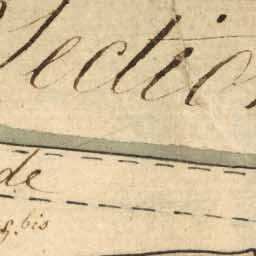 Section
de
9.bis